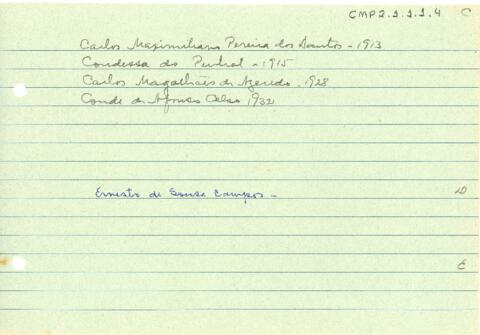 CMP2.1.1.1.4 C
Carlos Maximiliano Pereira dos Santos - 1913
Condessa do Pinhal - 1915
Carlos Magalhães de Azeredo - 1928
Conde de Afonso Celso 1932
Ernesto de Sousa Campos -
D
E